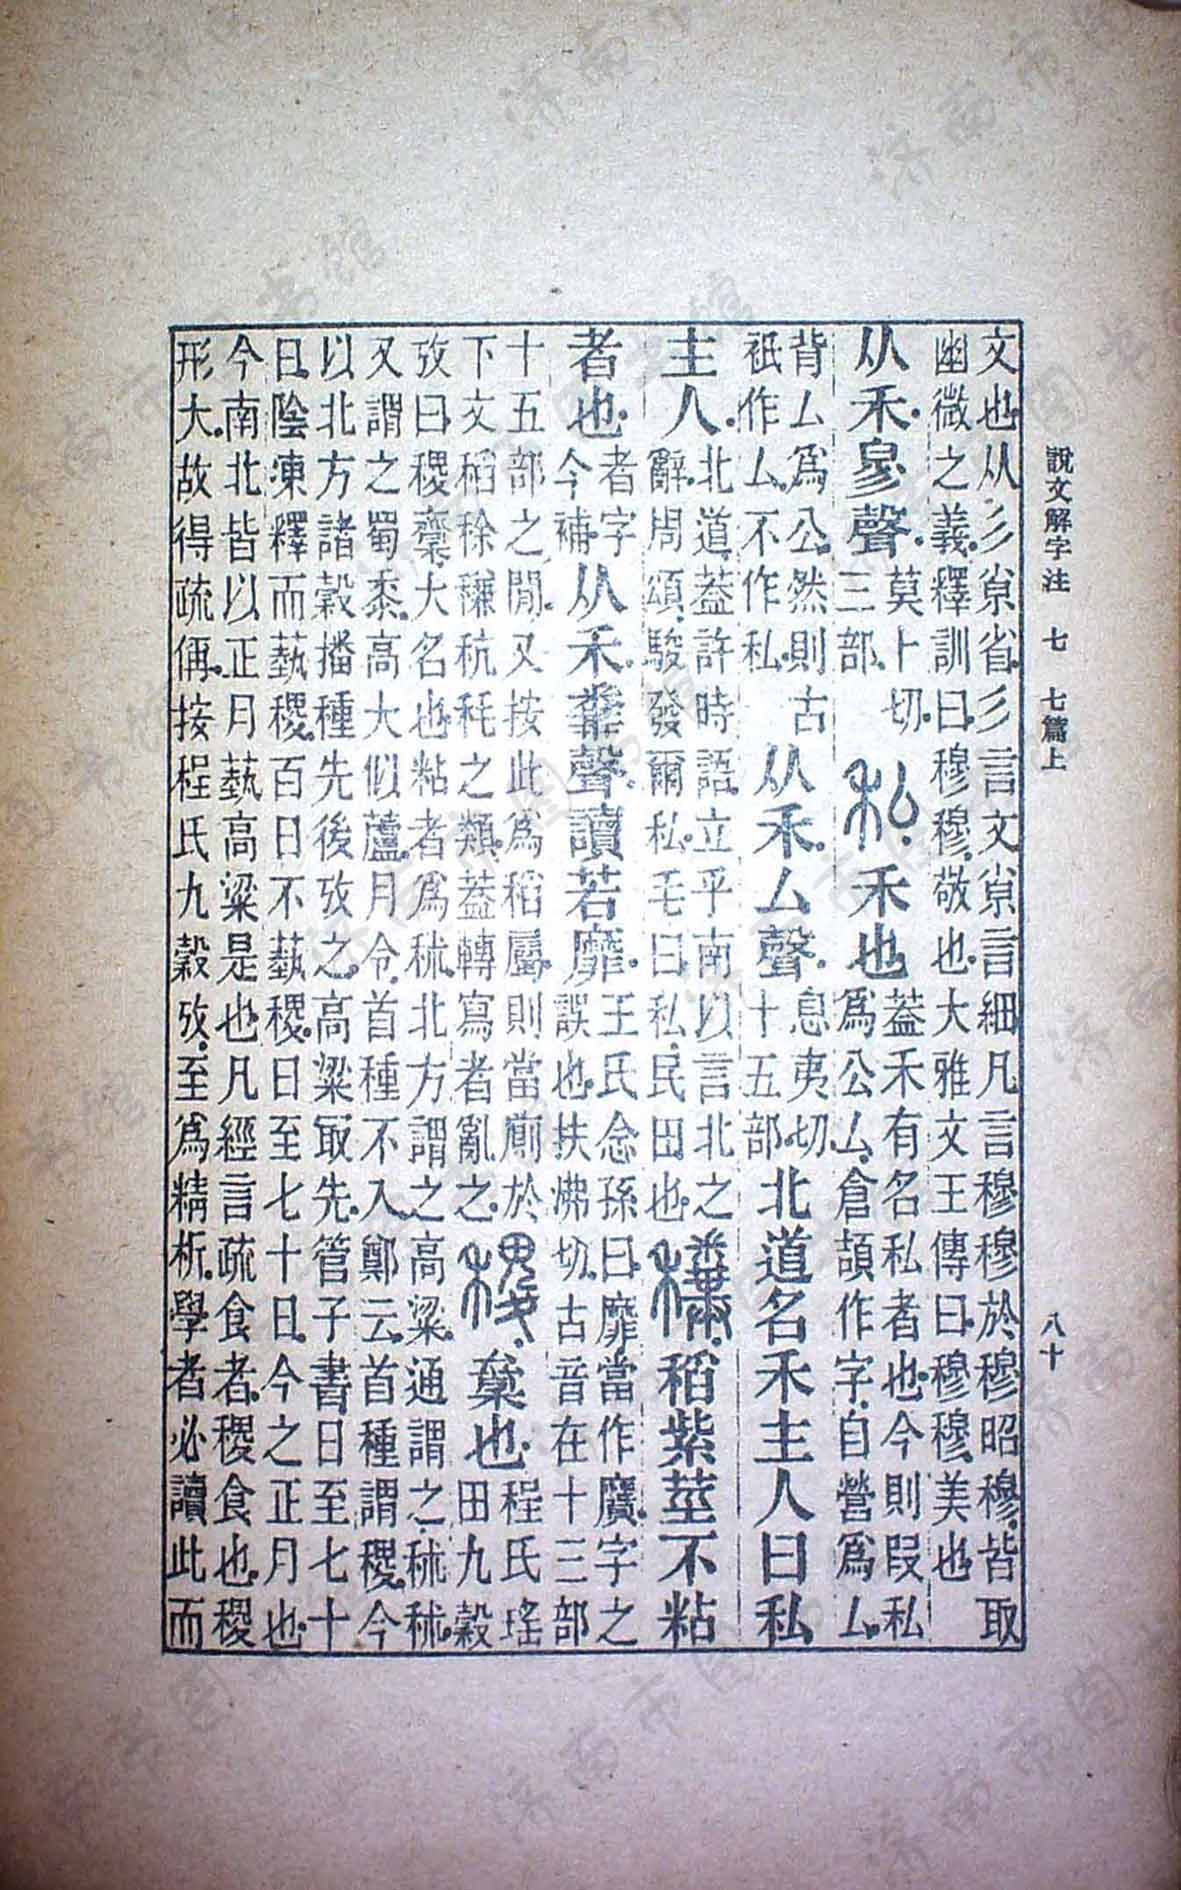 說文解字注 七 七篇上 八十
文也从彡㣎省彡言文㣎言細凡言穆穆於穆昭穆皆取
幽微之義釋訓曰穆穆敬也大雅文王傳曰穆穆美也
从禾㣎聲莫卜切三部私禾也蓋禾有名私者也今則叚私爲公厶倉頡作字自營爲厶
背厶爲公然則古祇作厶不作私从禾厶聲息夷切十五部北道名禾主人曰私
主人北道蓋許時語立乎南以言北之辭周頌駿發爾私毛曰私民田也稻紫莖不粘
者也者字今補从禾糞聲讀若靡王氏念孫曰靡當作黂字之誤也扶沸切古音在十三部
十五部之閒又按此爲稻屬則當廁於下文稻稌稴秔秏之類蓋轉寫者亂之稷𪗉也程氏瑤田九穀
攷曰稷𪗉大名也粘者爲秫北方謂之高粱通謂之秫秫
又謂之蜀黍高大似蘆月令首種不入鄭云首種謂稷今
以北方諸穀播種先後攷之高粱取先管子書日至七十
日陰凍釋而蓺稷百日不蓺稷日至七十日今之正月也
今南北皆以正月蓺高粱是也凡經言疏食者稷食也稷
形大故得疏偁按程氏九穀攷至爲精析學者必讀此而